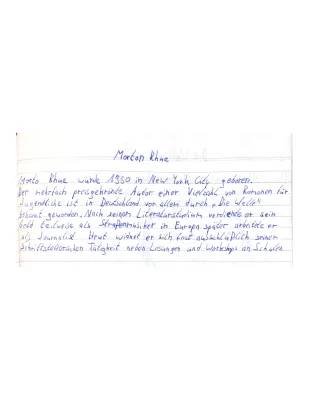 Morton Rhue
Morto Rhue wurde 1950 in New York City geboren.
Der mehrfach preisgekrönte Autor einer Vielzahl von Romanen für
Jugendliche ist in Deutschland vor allem durch „Die Welle"
bekannt geworden. Nach seinem Literaturstudium verdiente er sein
Geld teilweise als Straßenmusiker in Europa später arbeitete er
als Journalist Heut widmet er sich fast ausschließlich seiner
schriftstellerischen Tätigkeit neben Lesungen und Workshops an Schulen